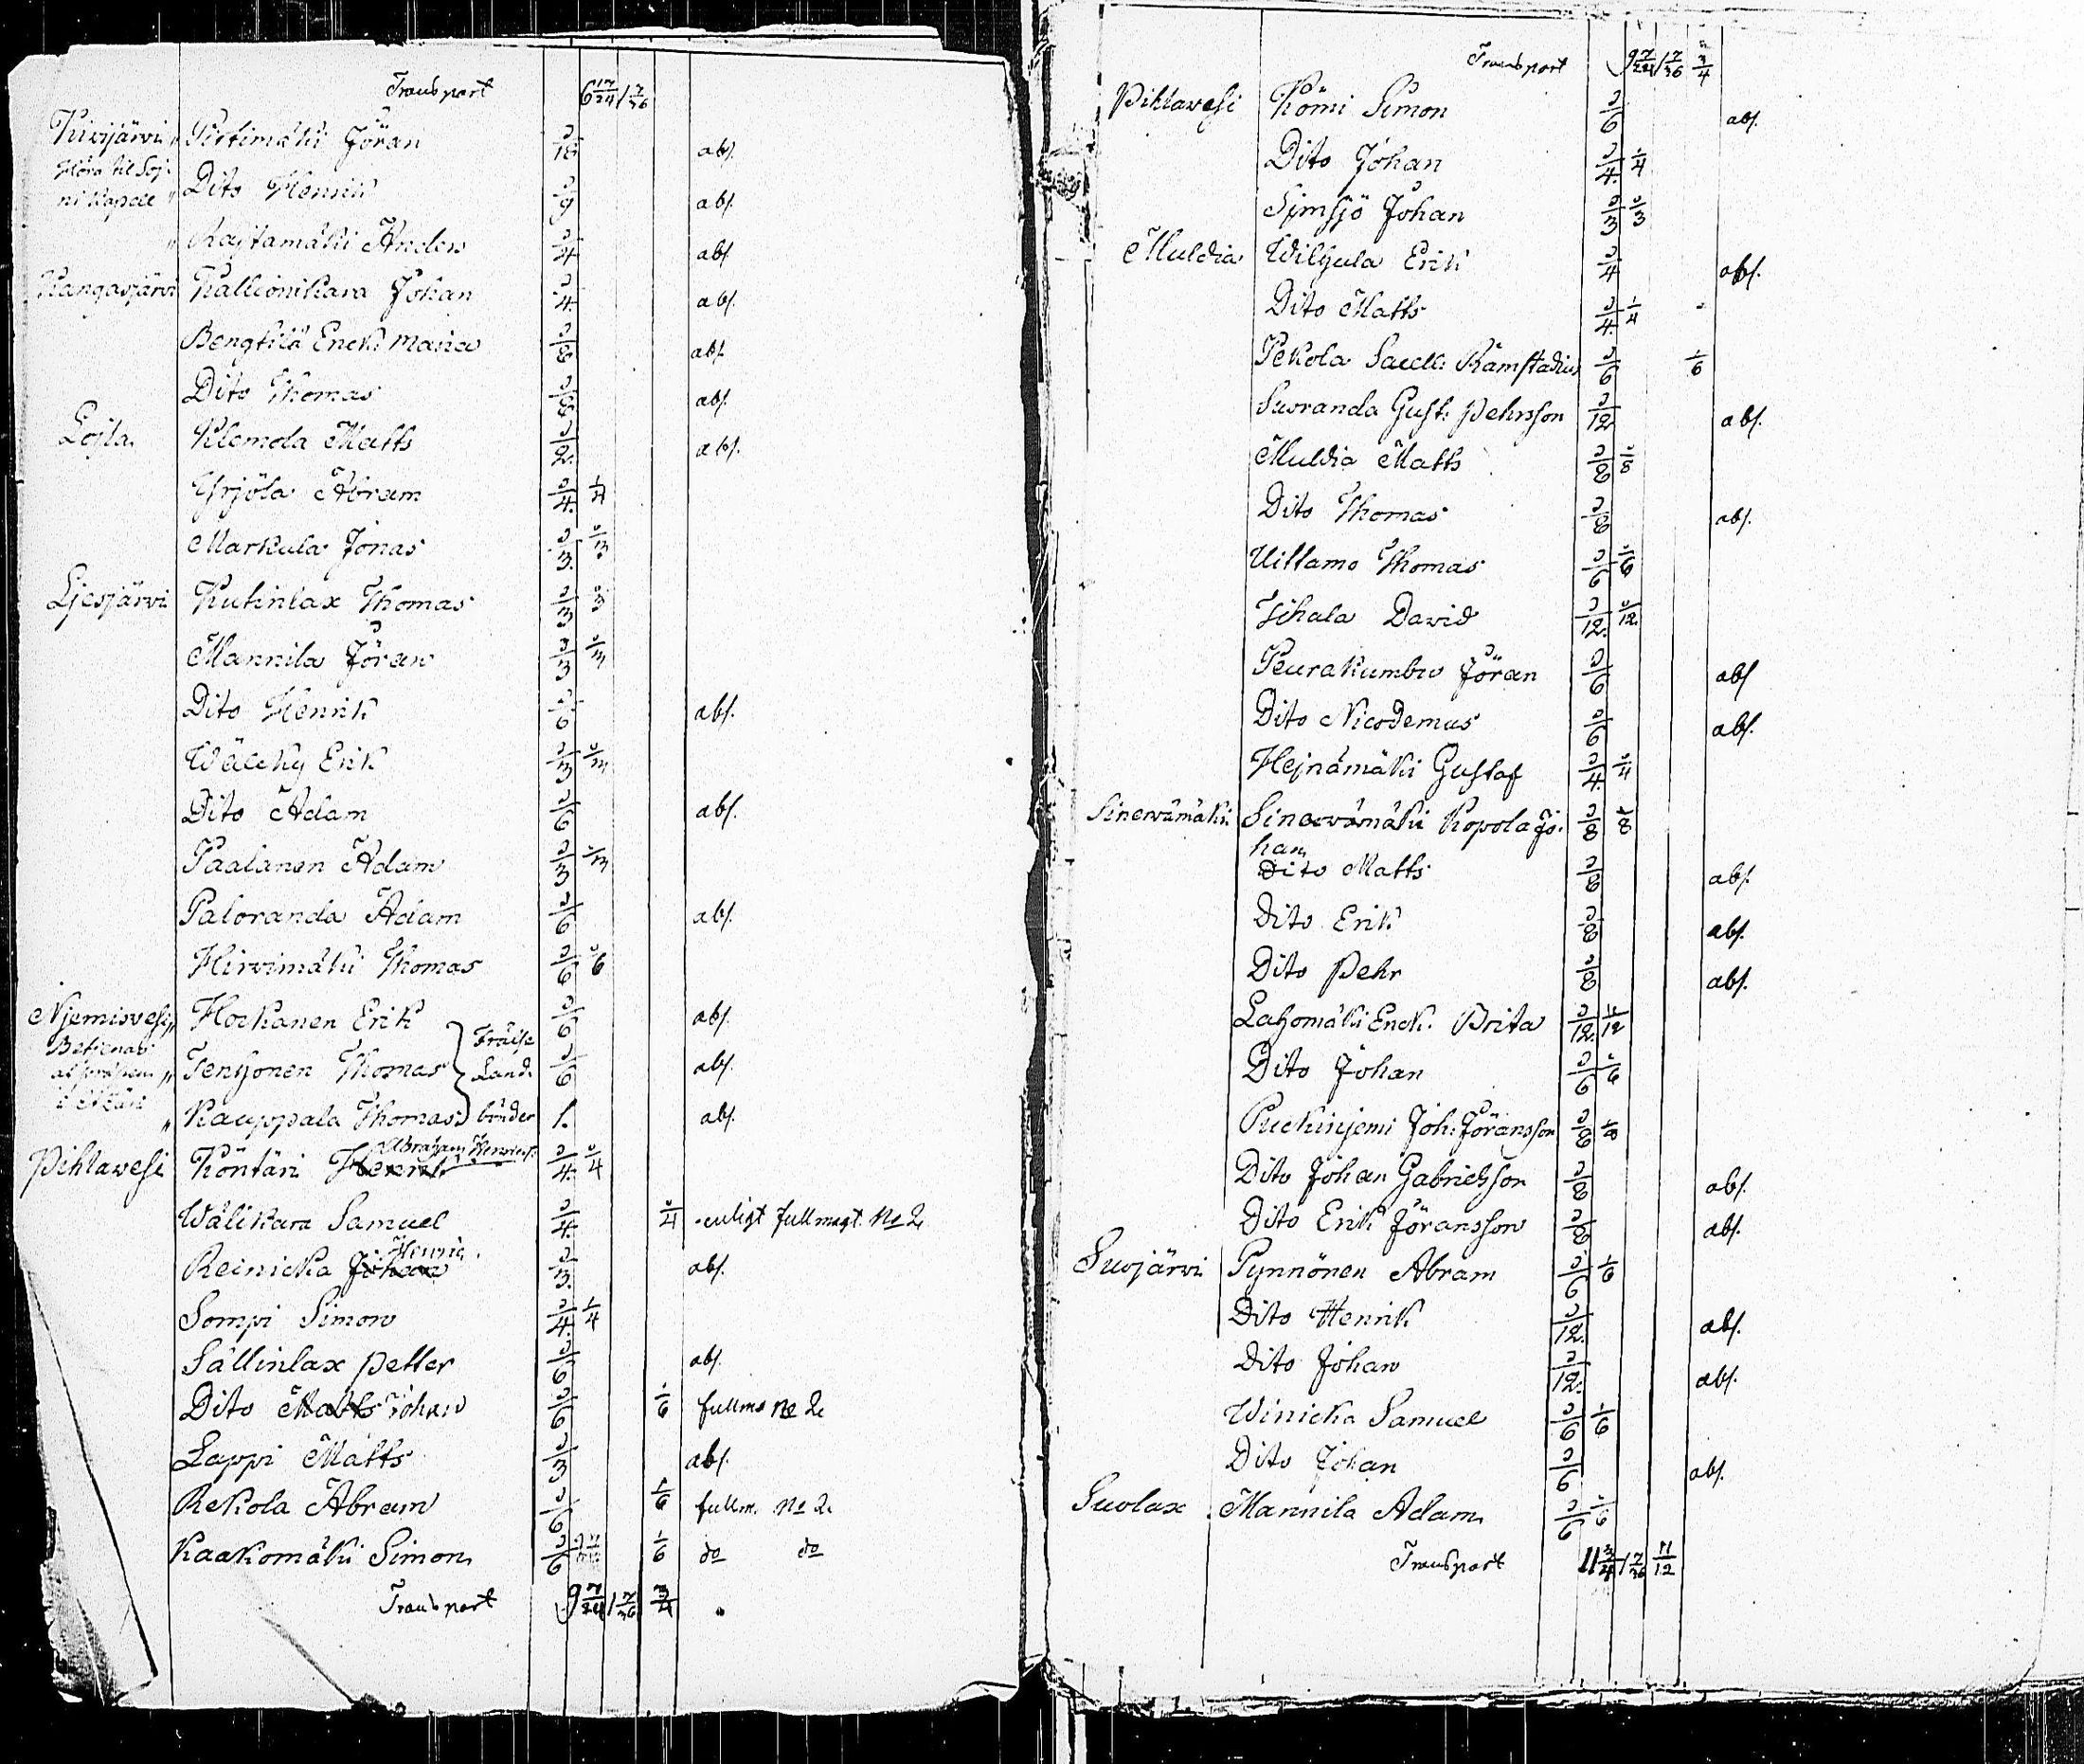 Transport 6 17/24 1 7/36
Kivijärvi " Pirttimäki Jöran 1/18 abs.
Höra til Soj-
ni Kapell " Dito Henrik 1/9 abs.
" Rajtamäki Anders 1/4 abs.
Kangasjärvi Kallionikara Johan 1/4. abs.
Bengtilä Enck: Maria 1/8 abs.
Dito Thomas 1/8 abs.
Lojla. Klemola Matts 1/2. abs.
Yrjöla Abram 1/4. 1/4
Markula Jonas 1/3. 1/3
Ljesjärvi Kutinlax Thomas 1/3 1/3
Mannila Jöran 1/3 1/3
Dito Henrik 1/6 abs.
Wäliky Erik 1/3 1/3
Dito Adam 1/6 abs.
Paalanen Adam 1/3 1/3
Paloranda Adam 1/6 abs.
Hirvimäki Thomas 1/6 1/6
Njemisvesi " Hockanen Erik 1/6 abs.
Betjenas Fräise
" Tenhonen Thomas Land 1/6 abs.
" Kauppala Thomas bönder 1. abs.
Abraham Henricss.
Pihlavesi Köntäri Henrik 1/4. 1/4
Wälikara Samuel 1/4. 1/4 enligt fullmagt No 2
Henric
Reinicka Johan 1/3. abs.
Sompi Simon 1/4. 1/4
Sällinlax Petter 1/6 abs.
Dito Matts Johan 1/6 1/6 fullma No 2
Lappi Matts 1/3 abs.
Rekola Abram 1/6 1/6 fullm. No 2
Kaakomäki Simon 1/6 1/6 do do
Transport 9 7/24 1 7/36 3/4
Transport 9 7/24 1 7/36 3/4
Pihlavesi Kömi Simon 1/6 abs.
Dito Johan 1/4. 1/4
Simsjö Johan 1/3 1/3
Muldia Wilhula Erik 1/4 abs.
Dito Matts 1/4. 1/4
Pekola Sauell: Rämstadius 1/6 1/6
Suoranda Gust: Pehrsson 1/12 abs.
Muldia Matts 1/8 1/8
Dito Thomas 1/8 abs.
Uittamo Thomas 1/6 1/6
Jihala David 1/12. 1/12.
Peurakumbu Jöran 1/6 abs
Dito Nicodemus 1/6 abs.
Hejnämäki Gustaf 1/4. 1/4
Sinervämäki. Sinervämäki Kopola Jo- 1/8 1/8
han
Dito Matts 1/8 abs.
Dito Erik 1/8 abs.
Dito Pehr 1/8 abs.
Lahomäki Enck. Brita 1/12. 1/12
Dito Johan 1/6 1/6
Puckinjemi Joh: Jöransson 1/8 1/8
Dito Johan Gabrielsson 1/8 abs.
Dito Erik Jöransson 1/8 abs.
Suojärvi Pynnönen Abram 1/6 1/6
Dito Henrik 1/12. abs.
Dito Johan 1/12. abs.
Winicka Samuel 1/6 1/6
Dito Johan 1/6 abs.
Suolax Mannila Adam 1/6 1/6
Transport 11 3/4 1 7/36 11/12